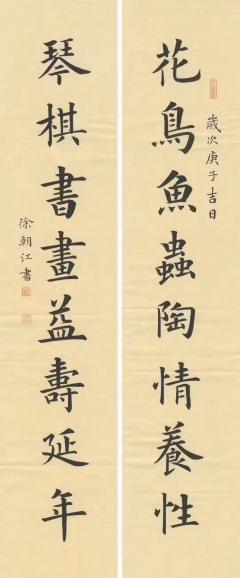 花鳥魚蟲陶情養性
歲次庚子吉日
琴棋書畫益壽延年
徐朝江書